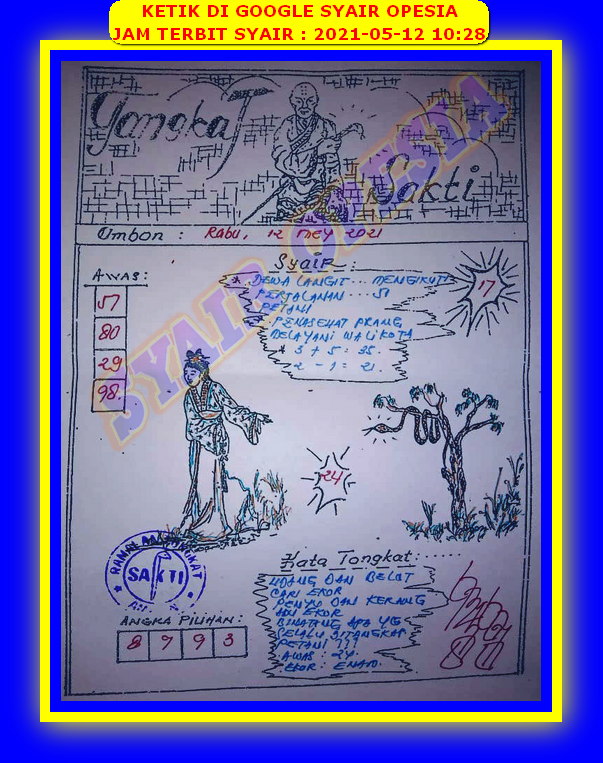 KETIK DI GOOGLE SYAIR OPESIA
JAM TERBIT SYAIR : 2021-05-12 10:28
SYAIR OPESIA
Tongkat
Sakti
Umbon : Rabu, 12 Mey 2021
AWAS:
51
80
29
98.
Syair:
* DEWA LANGIT... MENGIKUTI
PERJALANAN... 51
PETANI
PENASEHAT PRANG
MELAYANI WALIKOTA
* 3 + 5 = 35.
2 - 1 = 21.
17
24
SAKTI
ANGKA PILIHAN:
8 7 9 3
Kata Tongkat:......
UDANG DAN BELUT
CARI EKOR
PENYU DAN KERANG
ADU EKOR
BINATANG APA YG
SELALU DITANGKAP
PETANI ???
AWAS: 24.
EKOR: ENAM.
80